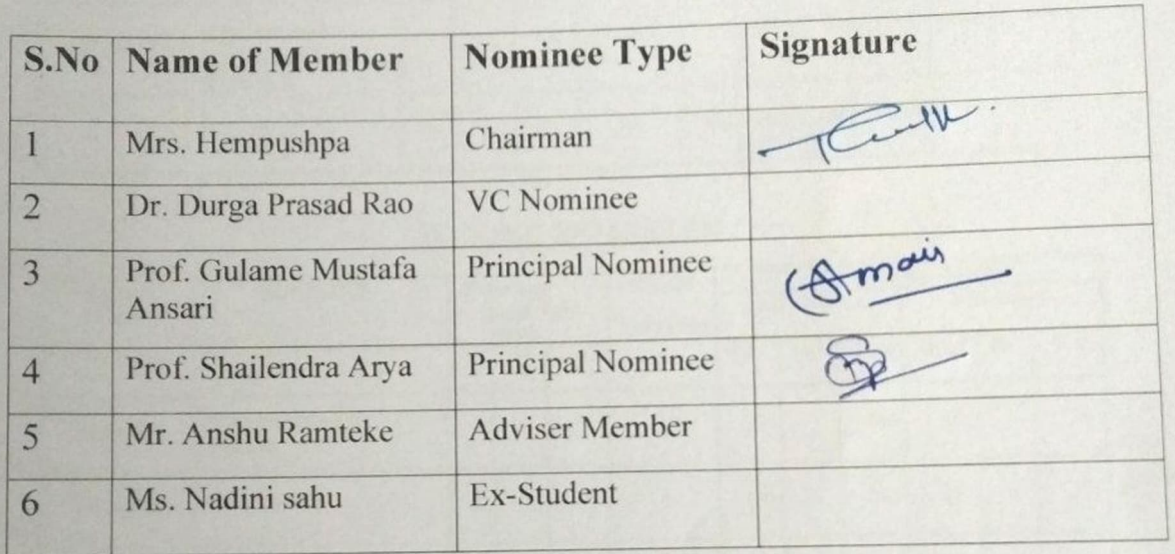 S.No Name of Member Nominee Type Signature
1 Mrs. Hempushpa Chairman
2 Dr. Durga Prasad Rao VC Nominee
3 Prof. Gulame Mustafa Principal Nominee
Ansari
4 Prof. Shailendra Arya Principal Nominee
5 Mr. Anshu Ramteke Adviser Member
6 Ms. Nadini sahu Ex-Student